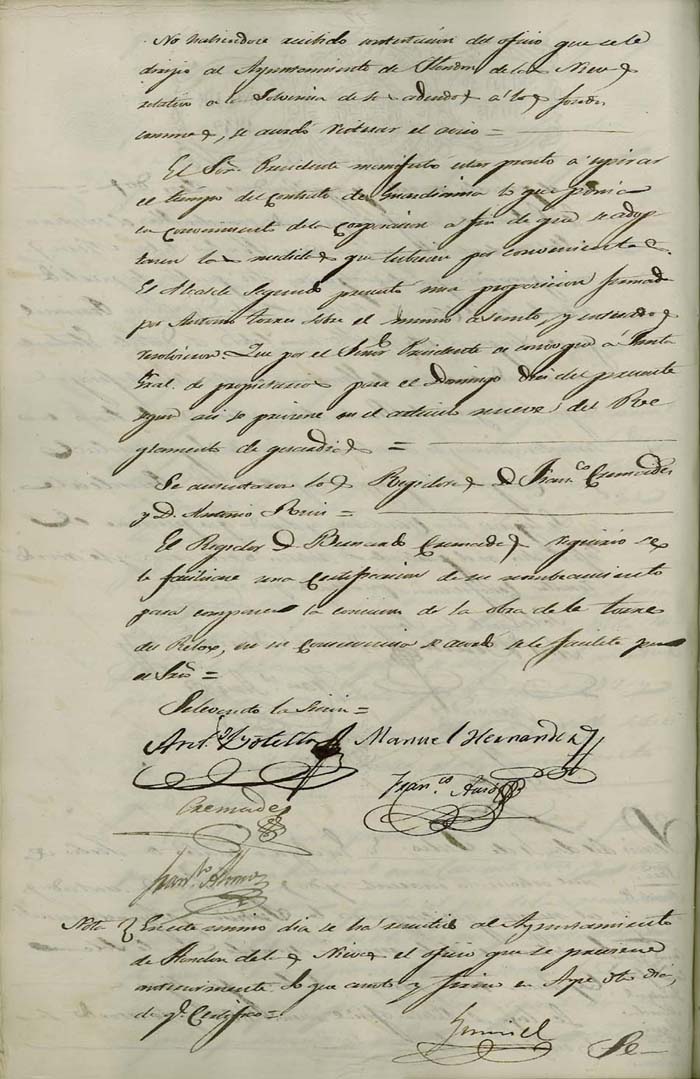 No habiendose recibido contestacion del oficio que se le
dirijio al Ayuntamiento de Hondon de las Nieves
relativo a la Solvencia de los adeudos a los fondos
comunes, se acordo reiterar el oficio =
El Sor. Presidente manifesto estar pronto a espirar
el tiempo del Contrato de Guardianía lo que ponia
en conocimiento de la Corporacion a fin de que se adop
taran las medidas que tubiera por conveniente.
El Alcalde Segundo presentó una proposicion firmada
por Antonio Torres sobre el mismo asunto, y enterados
resolvieron: Que por el Señor Presidente se convoque á Junta
Gral. de propietarios para el Domingo diez del presente
segun asi se previene en el articulo nueve del Re
glamento de guardias =
Se ausentaron los Regidores D. Franco Cremades
y D. Antonio =
El Regidor D. Bernardo Cremades requirió se
le facilitase una Certificacion de su nombramiento
para componer la comision de la obra de la torre
del Relox, en su consecuencia se acordó se le facilite por
el Srio =
Selevando la Sesion =
Anto. Botella Manuel Hernandez
Cremades Franco
Franco
Nota En este mismo dia se há remitido al Ayuntamiento
de Hondon de las Nieves el oficio que se previene
anteriormente lo que anoto y firmo en Aspe dho dia,
de q. Certifico =
Se